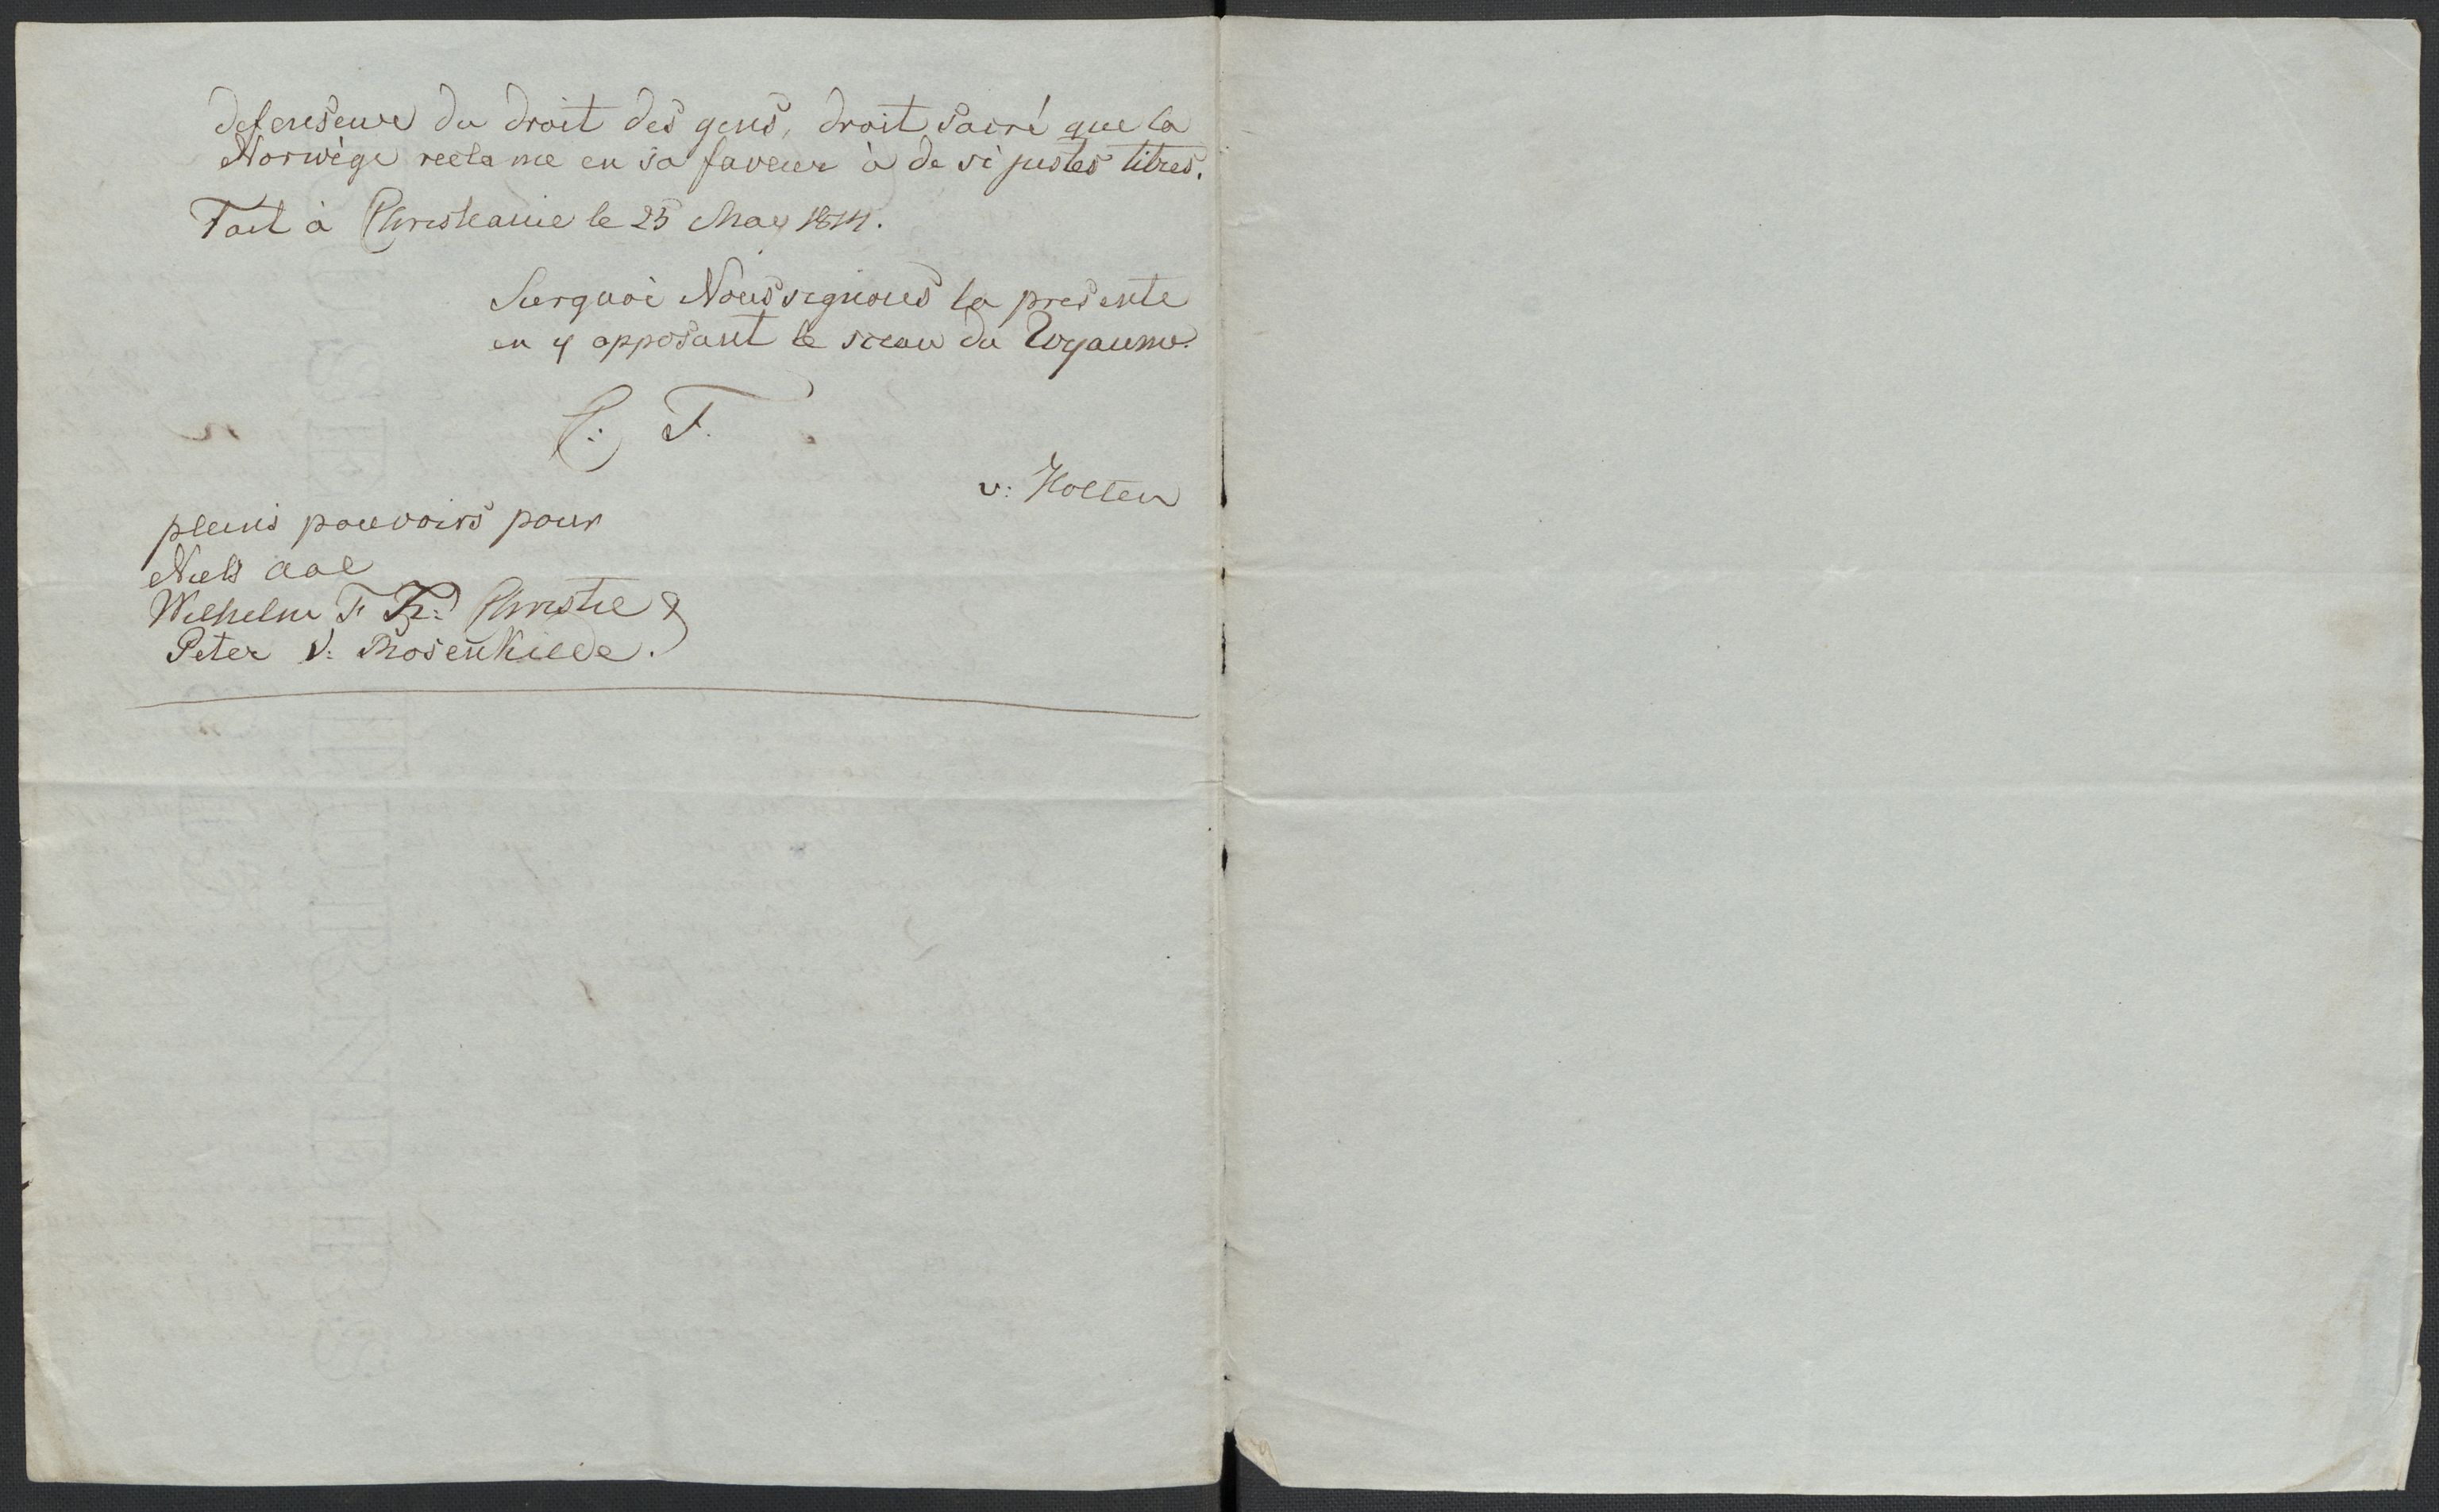 defenseur du droit des gens, droit sacré que la
Norwège reclame en sa faveur à de si justes titres.
Fait à Christianie le 25 May 1814.
Surquoi Nous signons la presente
en y apposant le sceau du Royaume.
C: F.
v: Holten
pleins pouvoirs pour
Niels aal
Wilhelm F. K: Christie &
Peter V: Rosenkilde.